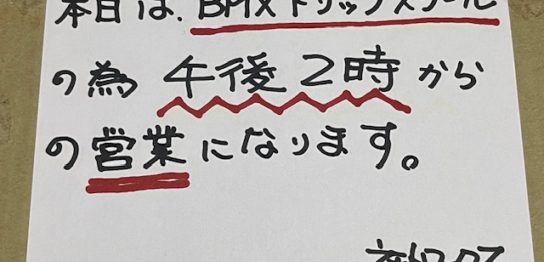 本日は、BMXトリックスクール
の為 午後2時から
の営業になります。